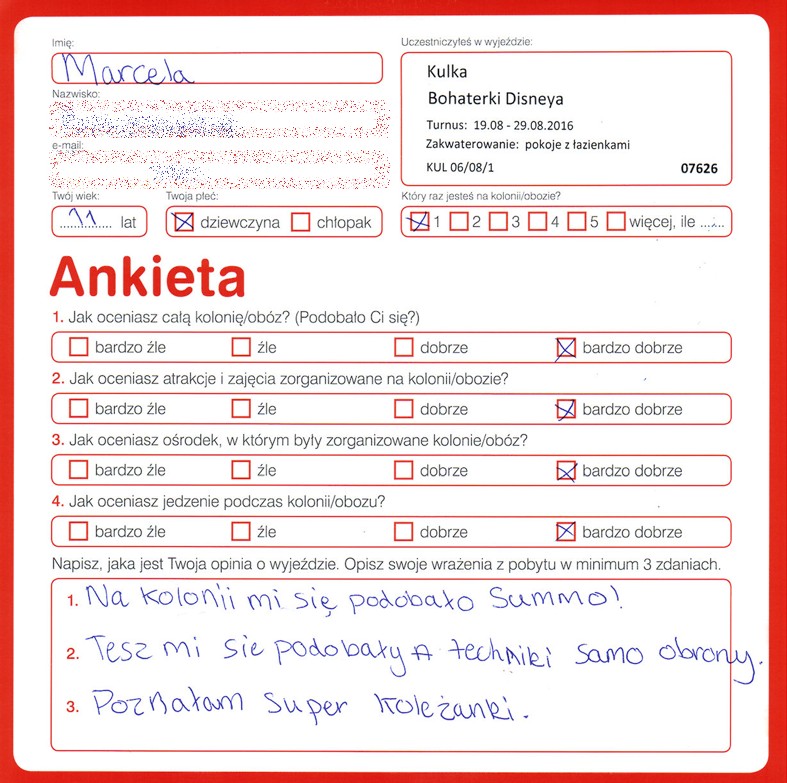 Imię:
Marcela
Nazwisko:
e-mail:
Twój wiek:
11 lat
Twoja płeć:
dziewczyna chłopak
Uczestniczyłeś w wyjeździe:
Kulka
Bohaterki Disneya
Turnus: 19.08 - 29.08.2016
Zakwaterowanie: pokoje z łazienkami
KUL 06/08/1 07626
Który raz jesteś na kolonii/obozie?
1 2 3 4 5 więcej, ile ......
Ankieta
1. Jak oceniasz całą kolonię/obóz? (Podobało Ci się?)
bardzo źle źle dobrze bardzo dobrze
2. Jak oceniasz atrakcje i zajęcia zorganizowane na kolonii/obozie?
bardzo źle źle dobrze bardzo dobrze
3. Jak oceniasz ośrodek, w którym były zorganizowane kolonie/obóz?
bardzo źle źle dobrze bardzo dobrze
4. Jak oceniasz jedzenie podczas kolonii/obozu?
bardzo źle źle dobrze bardzo dobrze
Napisz, jaka jest Twoja opinia o wyjeździe. Opisz swoje wrażenia z pobytu w minimum 3 zdaniach.
1. Na kolonii mi się podobało Summo!
2. Tesz mi sie podobały techniki samo obrony.
3. Poznałam super koleżanki.